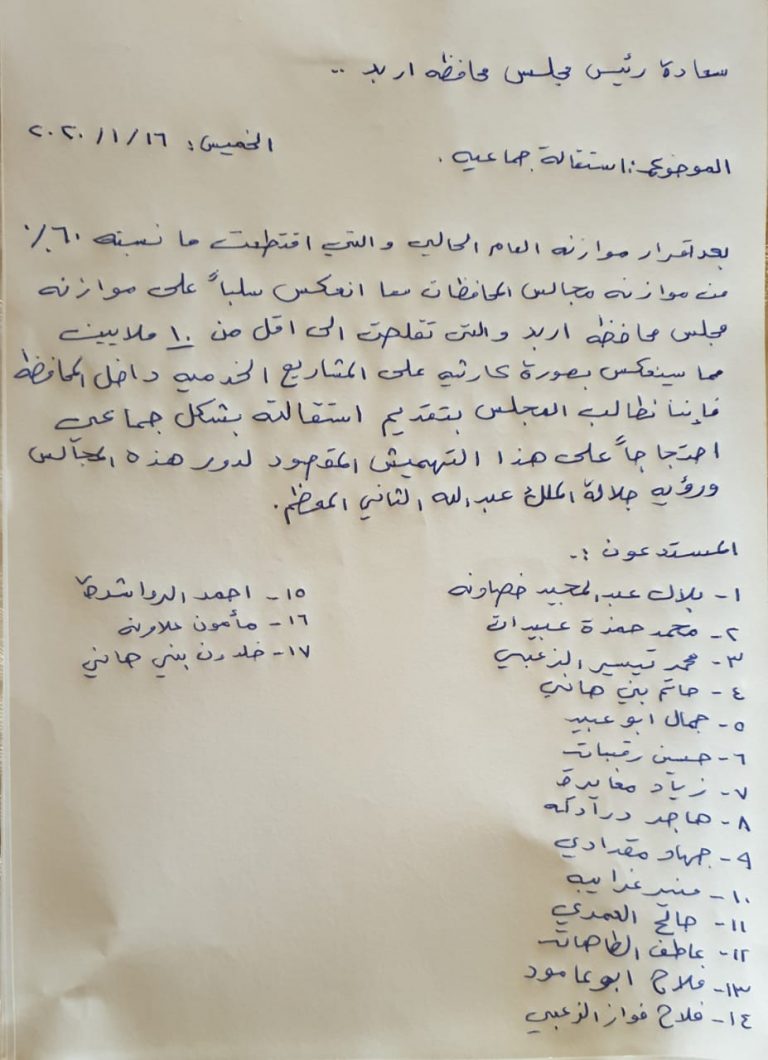 سعادة رئيس مجلس محافظه اربد ..
الخميس: ٢٠٢٠/١/١٦
الموضوع: استقالة جماعيه .
بعد اقرار موازنه العام الحالي والتي اقتطعت ما نسبته ٦٠٪
من موازنه مجالس المحافظات مما انعكس سلباً على موازنه
مجلس محافظه اربد والتي تقلصت الى اقل من ١٠ ملايين
مما سينعكس بصورة كارثيه على المشاريع الخدميه داخل المحافظه
فإننا نطالب المجلس بتقديم استقالته بشكل جماعي
احتجاجاً على هذا التهميش المقصود لدور هذه المجالس
ورؤيه جلالة الملك عبدالله الثاني المعظم.
المستدعون :-
١- بلال عبدالمجيد خصاونه
٢- محمد حمزة عبيدات
٣- محمد تيسير الزعبي
٤- حاتم بني هاني
٥- جمال ابو عبيد
٦- حسين رقيبات
٧- زياد مغايرة
٨- هاجد درادكه
٩- جهاد مقدادي
١٠- منير غرايبه
١١- صالح العمري
١٢- عاطف الطاهات
١٣- فلاح ابوعامود
١٤- فلاح فواز الزعبي
١٥- احمد الرواشدة
١٦- مأمون علاونه
١٧- خلدون بني هاني